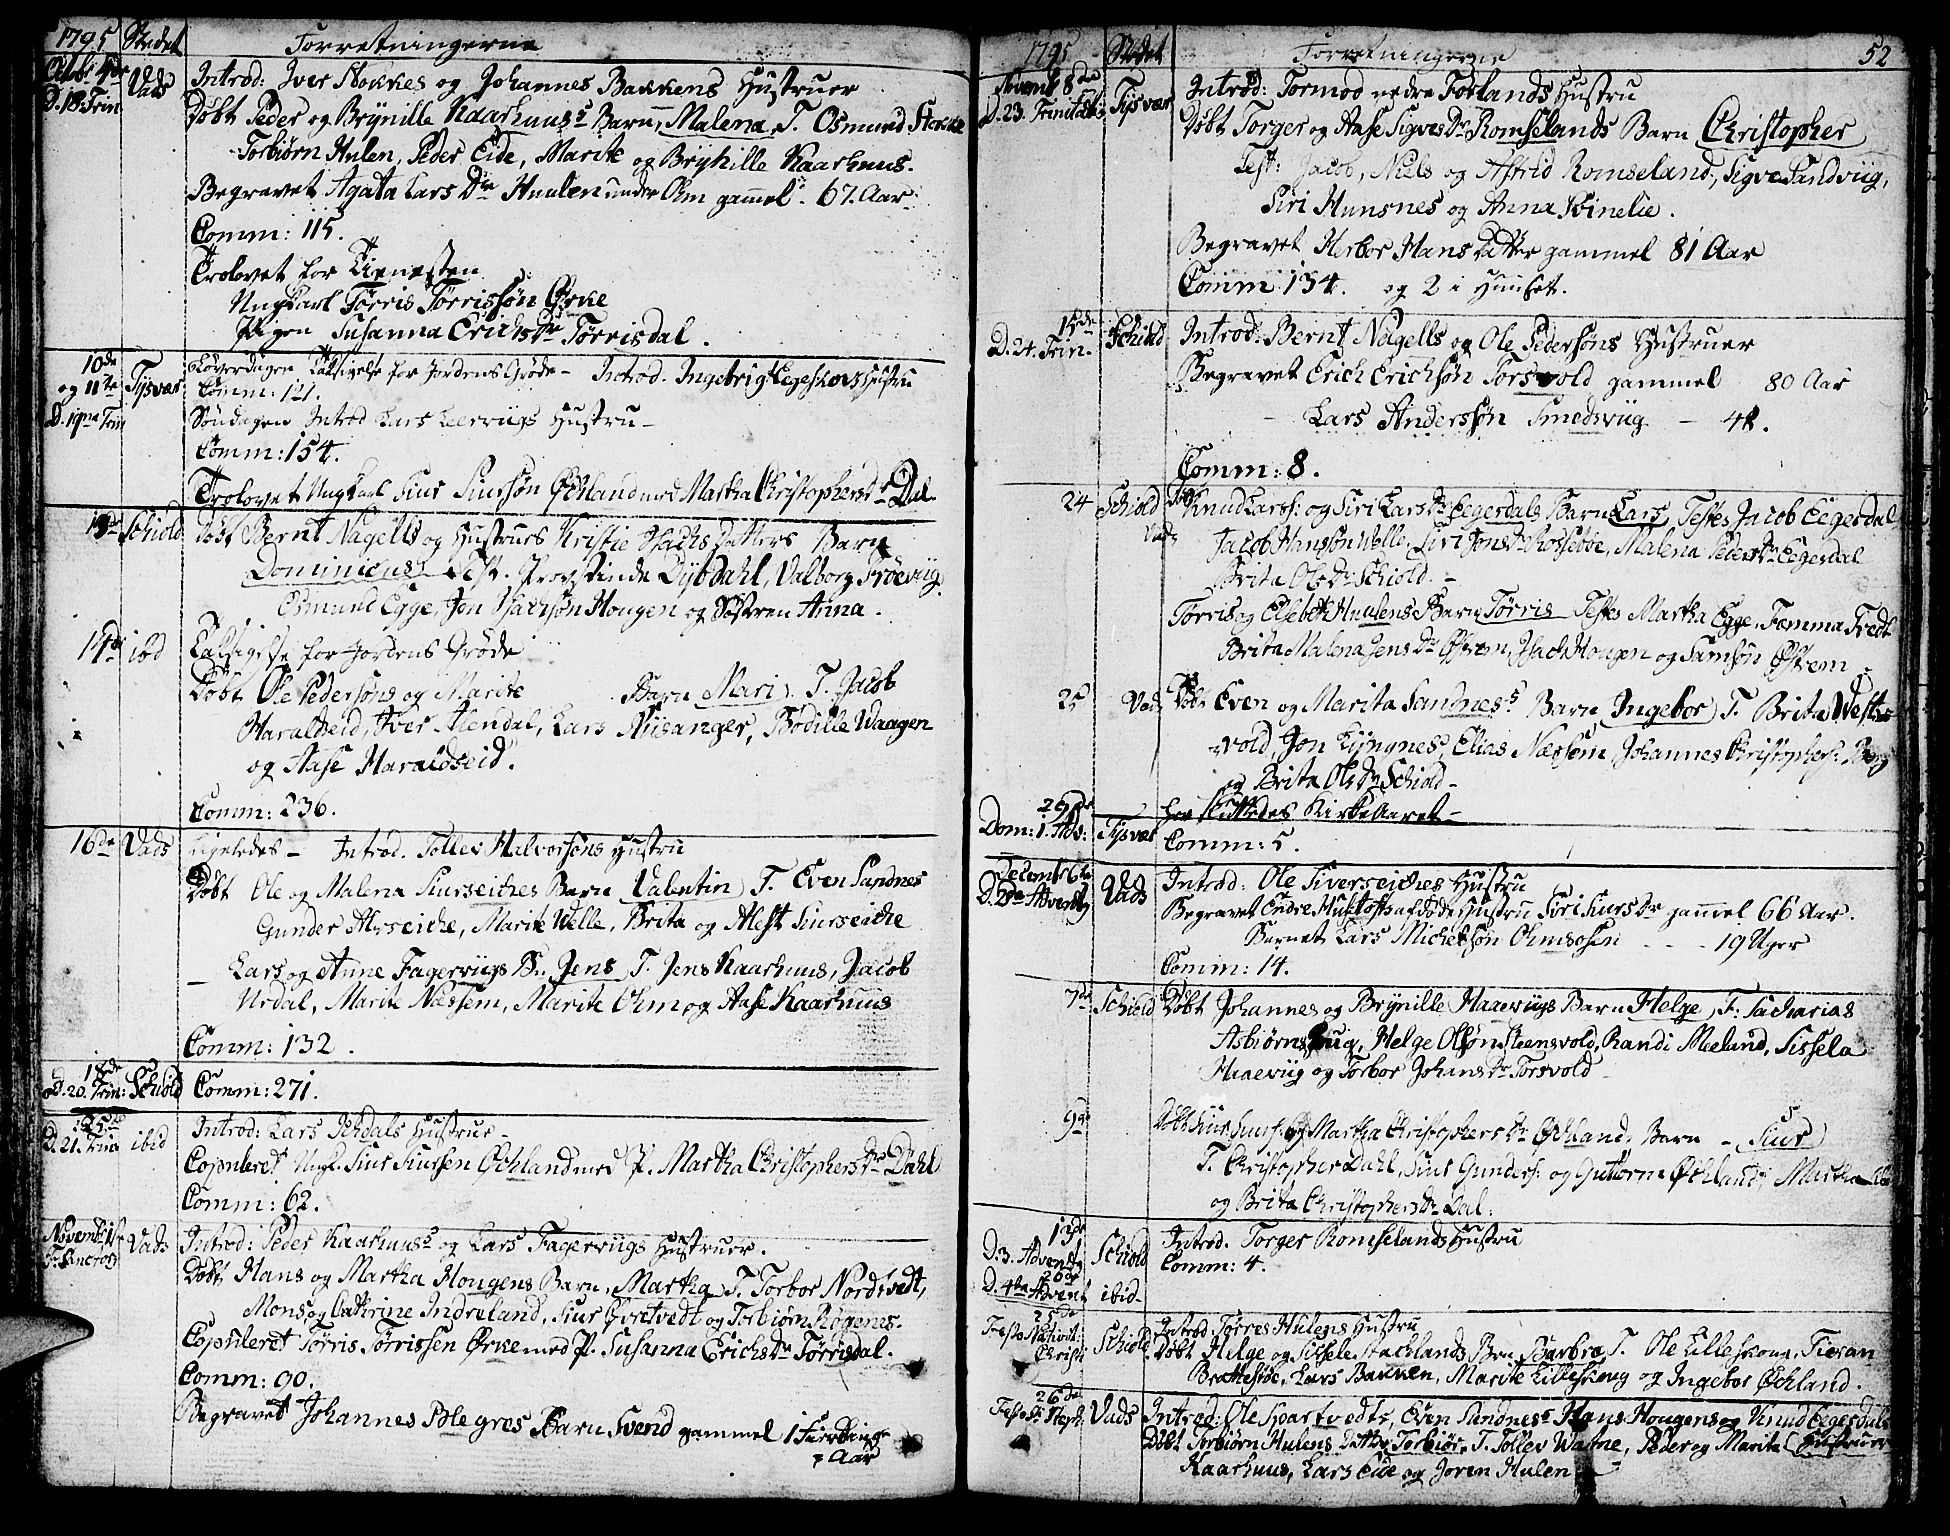 1795 Stedet Forretningerne
Octobr 4de Vads Introd: Iver Stokkes og Johannes Bakkens Hustruer
D. 18. Trin Døbt Peder og Brynille Kaarhuus's Barn, Malena, T. Osmund Stokke
Torbiørn Hulen, Peder Eide, Marite og Brynille Kaarhuus.
Begravet Agata Lars Dtr Huulen gammel 67. Aar.
Comm: 115.
Trolovet for Tienesten
Ungkarl Tørris Tørrissøn Ørke
Pigen Susanna Erichs Dtr Tørrisdal.
10de og 11te Tysvær Løverdagen Taksigelse for Jordens Grøde - Introd. Ingebrigt Eegeskovs Hustru
Comm: 121.
D. 19na Trin Søndagen Introd Lars Leervigs Hustru -
Comm: 154.
Trolovet Ungkarl Siur Siurssøn Øchland med Martha Christophers Dr Dal
13de Schiold Døbt Bernt Nagells og Hustrues Kristie Isachs Datters Barn
Dominicus, Test. Provstinde Dybdahl, Valborg Frøevig
Osmund Egge, Jon Isachsøn Hougen og Søstren Anna.
14de ibd Taksigelse for Jordens Grøde
Døbt Ole Pedersøns og Marite Barn Mari, T. Jacob
Haraldseid, Iver Alendal, Lars Nusanger, Bodille Waagen
og Aase Haraldseid.
Comm: 236.
16de Vads Ligeledes - Introd. Tollev Halvorsøns Hustru
Døbt Ole og Malena Siurseiches Barn Valentin, T. Even Sandnes
Gunder Alvseiche, Marite Welle, Brita og Alest Siurseiche
Lars og Anne Fagerviigs Bn. Jens, T. Jens Kaarhuus, Jacob
Urdal, Marite Næssem, Marite Ohm og Aase Kaarhuus
Comm: 132.
18de
D. 20. Trin: Schiold Comm: 271.
25de Introd: Lars Ichdals Hustrue -
D. 21. Trin ibid Copuleret Ungk. Siur Siursen Øchland med P. Martha Christophers Dr Dahl
Comm: 62.
Novembr 1ste Vads Introd: Peder Kaarhuus's og Lars Fagerviigs Hustruer.
Døbt Hans og Martha Hougens Barn, Martha, T. Torbor Nordtvedt,
Mons og Cathrine Indreland, Siur Øvretvedt og Torbiørn Røgenes.
Copuleret Tørris Tørrissen Ørke med P. Susanna Erichs Dr Tørrisdal.
Comm: 90.
Begravet Johannes Barn Svend gammel 1 Fierding
Aar
1795 Stedet Forretningerne 52
Novembr 8de Tysvær Introd: Tormod nedre Førlands Hustru
D. 23. Trinitatis Døbt Torger og Aase Sigves Dr Romselands Barn Christopher
Test: Jacob, Niels og Astrid Romseland, Sigve Sandviig,
Siri Hunsnes og Anna Svinelie.
Begravet Herbor Hans Datter gammel 81 Aar
Comm: 134. og 2 i Huuset.
15de Schiold Introd: Bernt Nagells og Ole Pedersøns Hustruer
D. 24. Trin. Begravet Erich Erichsøn Torsvold gammel 80 Aar
- Lars Anderssøn Smedsviig - 48.
Comm: 8.
24 Schiold Døbt Knud Larss: og Siri Lars Dr Eegesdals Barn Lars, Testes Jacob Eegesdal
Jacob Hansøn Welle, Siri Jons Dr Rossebøe, Malena Peders Dr Eegesdal
Brita Ols Dr Schiold. -
Tørris og Elsebeth Huulens Barn Tørris Testes Martha Egge, Femma Tvedt
Brita Malena Jens Dr Østrem, Isach Hougen og Samsøn Østrem
25 Vads Døbt Even og Marita Sandnes's Barn Ingebor, T. Brita Westre-
vold, Jon Lyngnes, Elias Næssem, Johannes Christophers: Berg
og Brita Ols Dr Schiold -
her sluttedes Kirkeaaret -
29de
Dom: 1. Adv: Tysvær Comm: 5.
Decembr 6te Vads Introd: Ole Siverseiches Hustru
D. 2den Advent Begravet Endre Hustofts afdøde Hustru Siri Siurs Dr gammel 66 Aar.
Barnet Lars Michelsøn Ohmsosen - - - 19 Uger
Comm: 14.
7de Schiold Døbt Johannes og Brynille Haaeviigs Barn Helge, T: Sacharias
Asbiørns Bug, Helge Olsøn Steensvold, Randi Meeland, Sissela
Haaeviig og Torbor Johans Dr Torsvold -
9de Døbt Siur Siurs: og Martha Christophers Dr Øchlands Barn - Siur
T. Christopher Dahl, Siur Gunders: og Guttorm Øchland, Martha
og Brita Christophers Dr Dal.
13de Introd. Torger Romselands Hustru
D. 3. Advent Schiold Comm: 4.
20de
D. 4de Advent ibid -
25de Introd: Tørres Hulens Hustru
Festo Nativit: Christi Schiold Døbt Helge og Sissele Stachlands Bn Barbro, T. Ole Lilleskoug, Tieran
Brattestøe, Lars Bakken, Marite Lilleskoug og Ingebor Øchland.
26de
Festo St. Steph. Vads Introd: Ole Spartvedts, Even Sandnes's Hans Hougens og Knud Eegesdals
Hustruer
Døbt Torbiørn Hulens Datter Torbior, T. Tollev Watne, Peder og Marita
Kaarhuus, Lars Eide og Joren Hulen